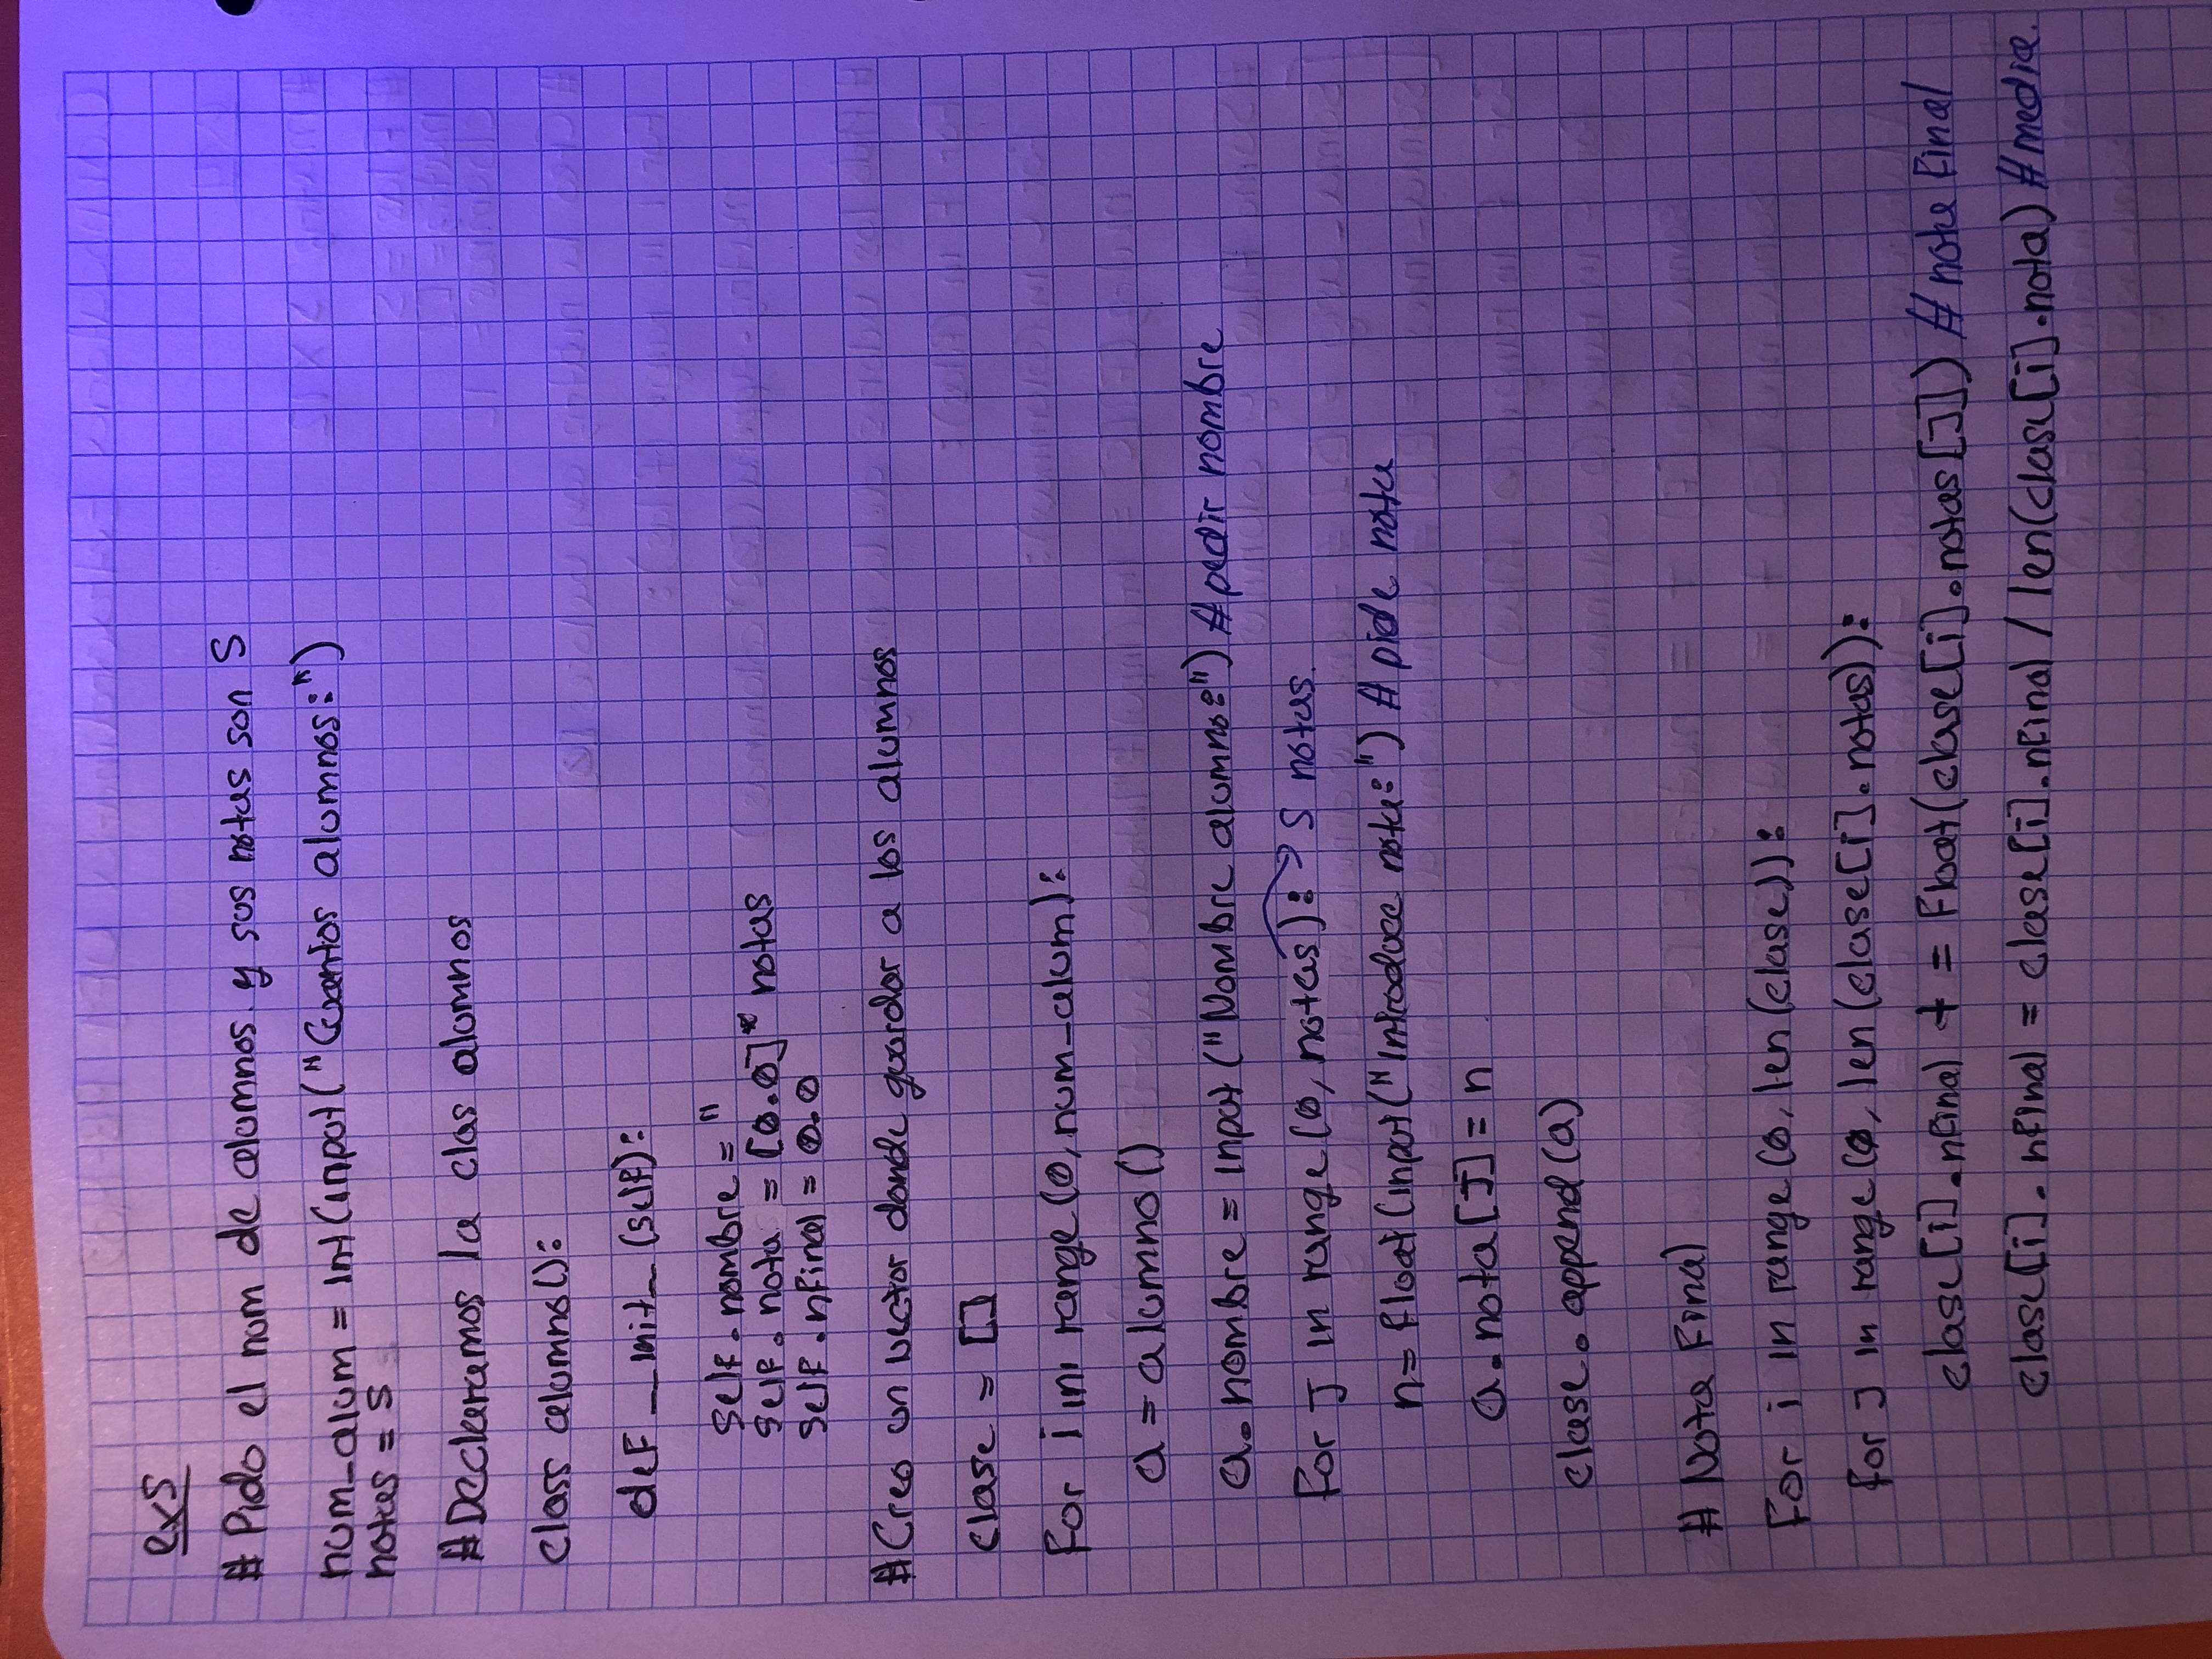 ex5
# Pido el num de alumnos y sus notas son 5
num_alum = int(input("Cuantos alumnos:")
notas = 5
#Declaramos la clas alumnos
class alumno():
def __init_ (self):
self.nombre = "
self.nota = [0.0]* notas
self.nfinal = 0.0
#Creo un vector donde guardar a los alumnos
clase = []
For i in range (0, num_alum):
a = alumno ()
a.nombre = input ("Nombre alumno:") #pedir nombre
For J in range (0, notas): → 5 notas.
n= float (input ("Introduce nota:") # pide nota
a.nota [J] = n
clase.append (a)
# Nota Final
For i in range (0, len (clase)):
for J in range (0, len (clase[i].notas)):
clase [i].nfinal += Float(clase[i].notas [J]) # nota Final
clase[i].nfinal = clase[i].nfinal / len(clase[i].nota) #media.